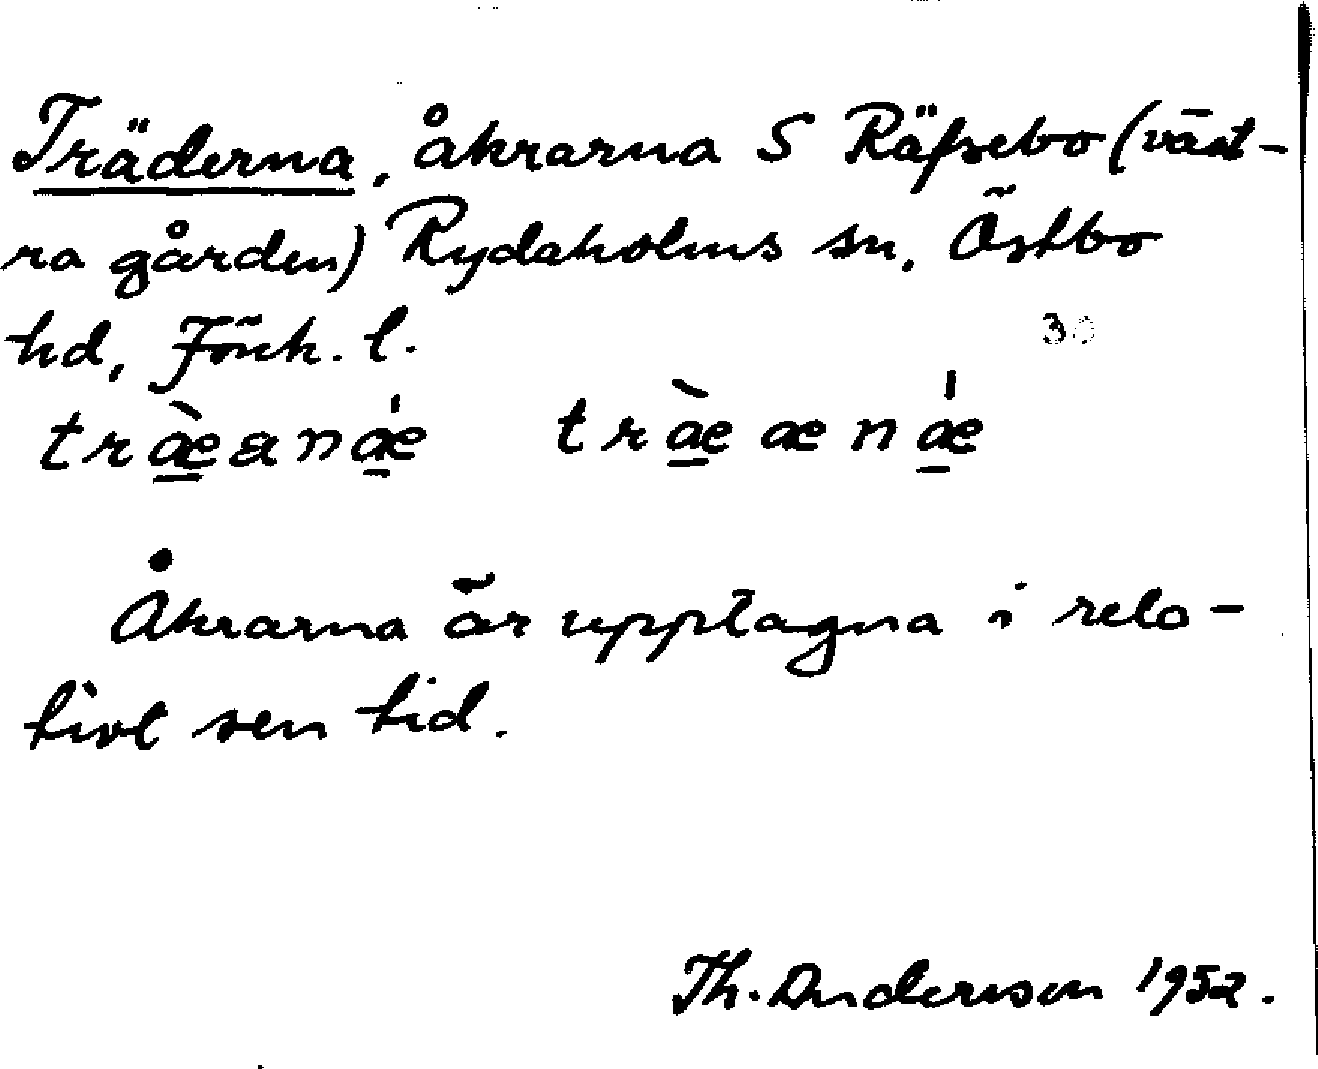 Träderna, åkrarna S Räfsebo (väst-
ra gården) Rydaholms sn, Östbo
hd, Jönk. l.
30
træ̲̀anǽ̲ træ̲̀ænǽ̲
Åkrarna är upptagna i rela-
tivt sen tid.
Th. Andersson 1952.